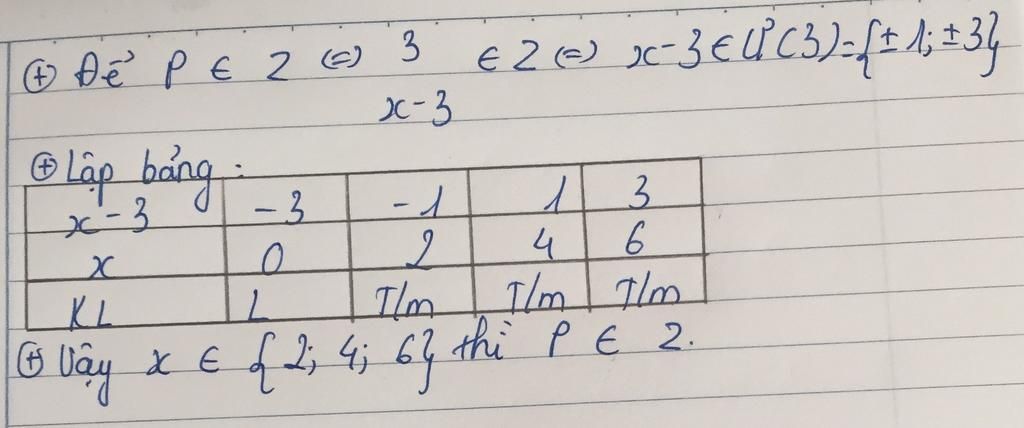 ⊕ Để P ∈ Z ⇔ 3 ∈ Z ⇔ x-3 ∈ Ư(3)={±1; ±3}
x-3
⊕ Lập bảng:
x-3 -3 -1 1 3
x 0 2 4 6
KL L T/m T/m T/m
⊕ Vậy x ∈ {2; 4; 6} thì P ∈ Z.